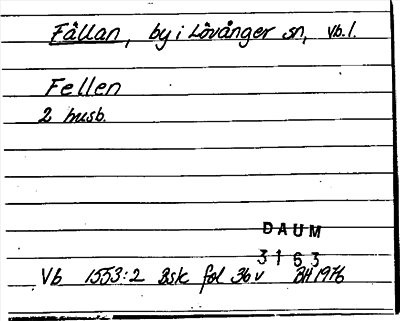 Fällan, by i Lövånger sn, Vb. l.
Fellen
2 husb.
DAUM
3163
Vb 1553:2 Bsk fol 36 v BH 1976